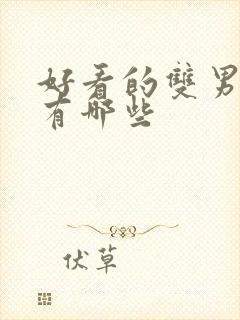 好看的雙男
有哪些
伏草